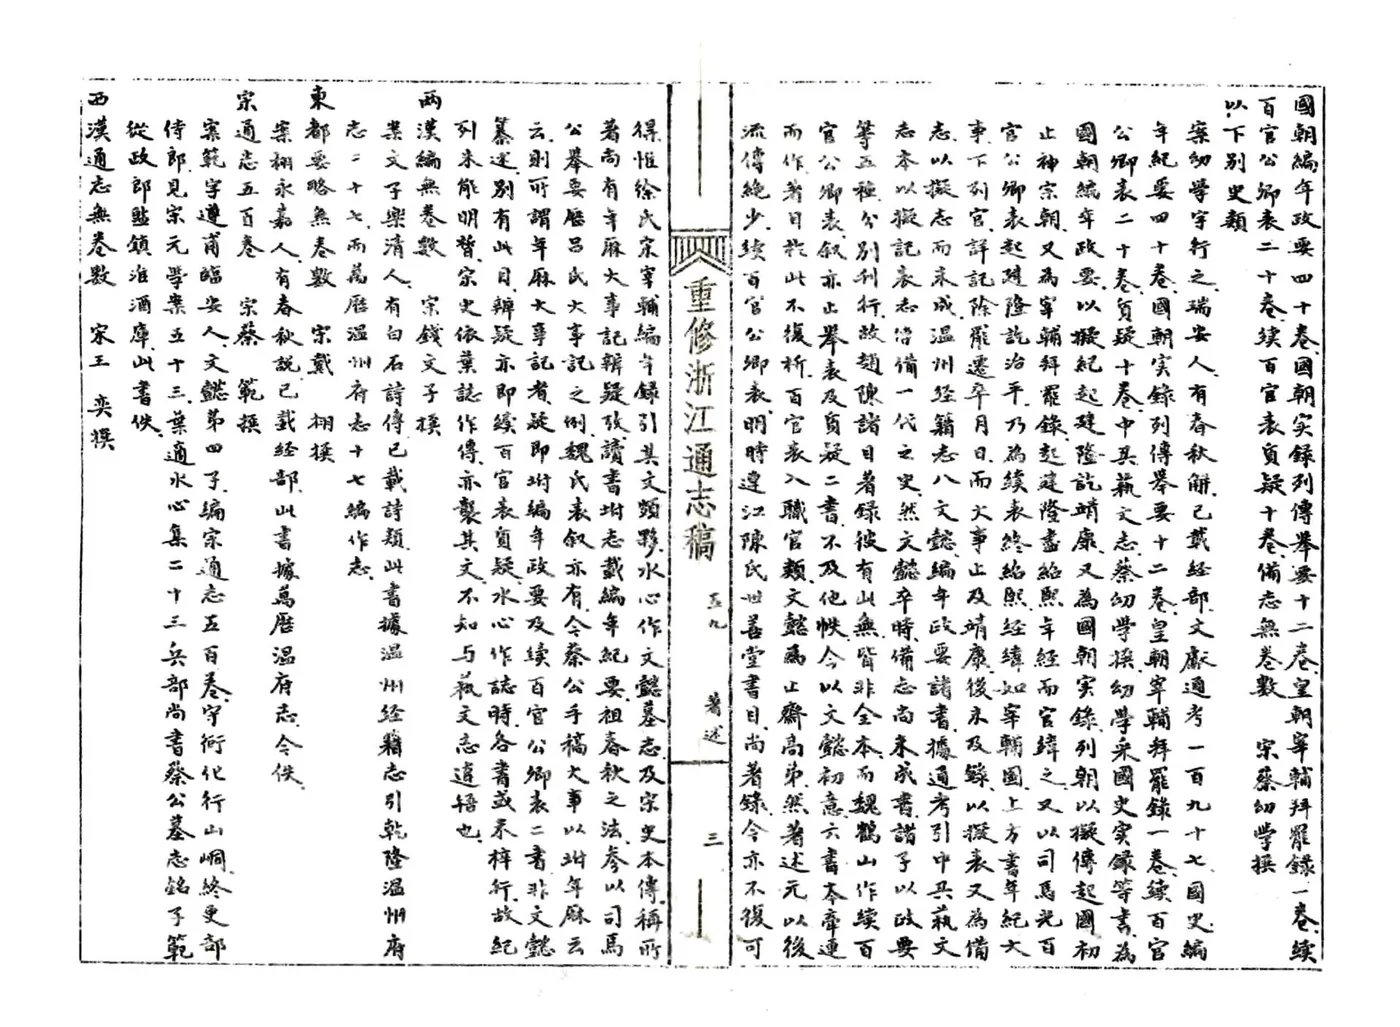 國朝編年政要四十卷國朝实録列傳舉要十二卷皇朝宰輔拜罷錄一卷續
百官公卿表二十卷續百官表質疑十卷備志無卷數　宋蔡幼學撰
以下别史類
案幼學字行之瑞安人有春秋解已載经部文獻通考一百九十七國史編
年紀要四十卷國朝实録列傳舉要十二卷皇朝宰輔拜罷錄一卷續百官
公卿表二十卷質疑十卷中興藝文志蔡幼學撰幼學采國史实録等書為
國朝編年政要以擬紀起建隆訖靖康又為國朝实錄列朝以擬傳起國初
止神宗朝又為宰輔拜罷錄起建隆盡紹熙年經而官緯之又以司馬光百
官公卿表起建隆訖治平乃為續表終紹熙经緯如宰輔圖上方書年紀大
事下列官詳記除罷遷卒月日而大事止及靖康後未及錄以擬表又為備
志以擬志而未成温州经籍志八文懿編年政要諸書據通考引中興藝文
志本以擬記表志洽備一代之史然文懿卒時備志尚未成書諸子以政要
等五種分别刊行故趙陳諸目著錄彼有此無皆非全本而魏鶴山作續百
官公卿表叙亦止舉表及質疑二書不及他帙今以文懿初意六書本牽連
而作著目於此不復析百官表入職官類文懿為止齋高弟然著述元以後
流傳絶少續百官公卿表明時連江陳氏世善堂書目尚著錄今亦不復可
重修浙江通志稿　五九　著述　三
得惟徐氏宋宰輔編年録引其文頗夥水心作文懿墓志及宋史本傳稱所
著尚有年厤大事記辨疑攷讀書坿志載編年紀要祖春秋之法参以司馬
公舉要厯吕氏大事記之例魏氏表叙亦有今蔡公手稿大事以坿年厤云
云則所謂年厤大事記者疑即坿編年政要及續百官公卿表二書非文懿
纂述别有此目辨疑亦即續百官表質疑水心作誌時各書或未梓行故紀
列未能明晳宋史依葉誌作傳亦襲其文不知与藝文志違牾也
兩漢編無卷數　宋錢文子撰
案文子樂清人有白石詩傳已載詩類此書據温州经籍志引乾隆温州府
志二十七而萬厯温州府志十七編作志
東都要略無卷數　宋戴　栩撰
案栩永嘉人有春秋説已載经部此書據萬厯温府志今佚
宋通志五百卷　宋蔡　範撰
案範字遵甫臨安人文懿第四子編宋通志五百卷守衢化行山峒終吏部
侍郎見宋元學案五十三葉適水心集二十三兵部尚書蔡公墓志銘子範
從政郎監鎮淮酒庫此書佚
西漢通志無卷數　宋王　奕撰